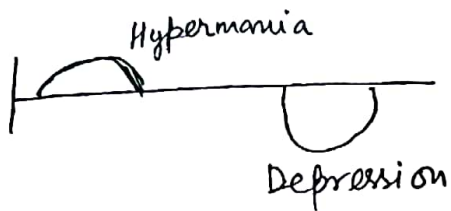 Hypermania
Depression